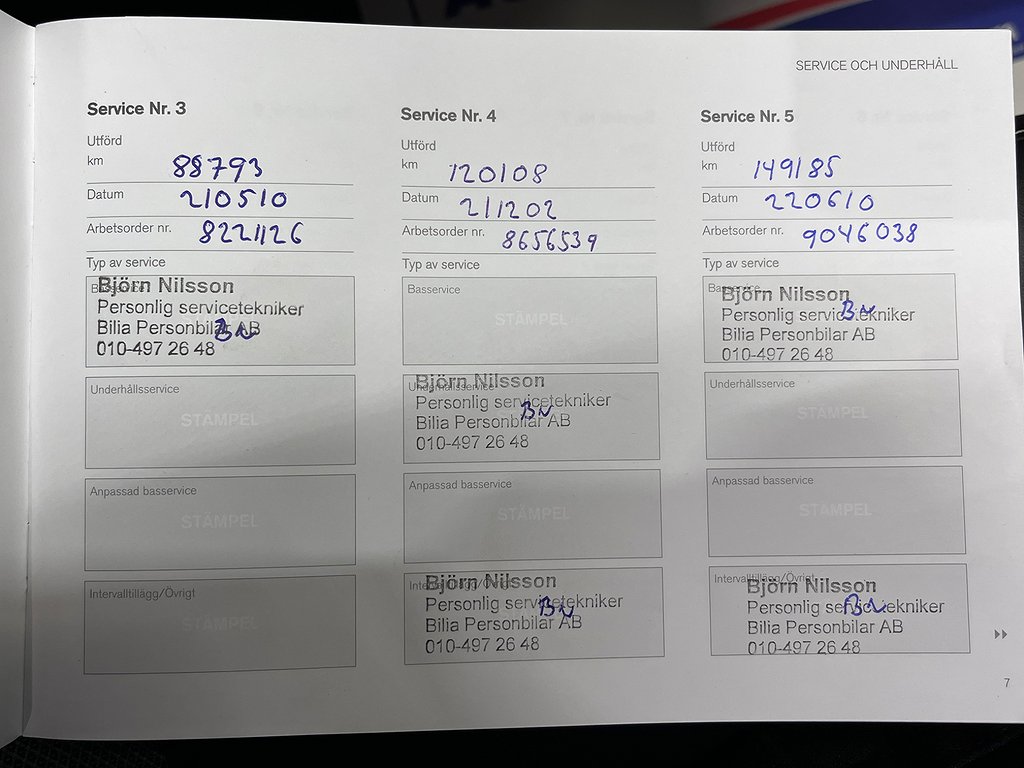 SERVICE OCH UNDERHÅLL
Service Nr. 3
Utförd
km 88793
Datum 210510
Arbetsorder nr. 8221126
Typ av service
Basservice
Björn Nilsson
Personlig servicetekniker
Bilia Personbilar AB
BN
010-497 26 48
Underhållsservice
STÄMPEL
Anpassad basservice
STÄMPEL
Intervalltillägg/Övrigt
STÄMPEL
Service Nr. 4
Utförd
km 120108
Datum 211202
Arbetsorder nr. 8656539
Typ av service
Basservice
STÄMPEL
Underhållsservice
Björn Nilsson
Personlig servicetekniker
BN
Bilia Personbilar AB
010-497 26 48
Anpassad basservice
STÄMPEL
Intervalltillägg/Övrigt
Björn Nilsson
Personlig servicetekniker
BN
Bilia Personbilar AB
010-497 26 48
Service Nr. 5
Utförd
km 149185
Datum 220610
Arbetsorder nr. 9046038
Typ av service
Basservice
Björn Nilsson
Personlig servicetekniker
BN
Bilia Personbilar AB
010-497 26 48
Underhållsservice
STÄMPEL
Anpassad basservice
STÄMPEL
Intervalltillägg/Övrigt
Björn Nilsson
Personlig servicetekniker
BN
Bilia Personbilar AB
010-497 26 48
7